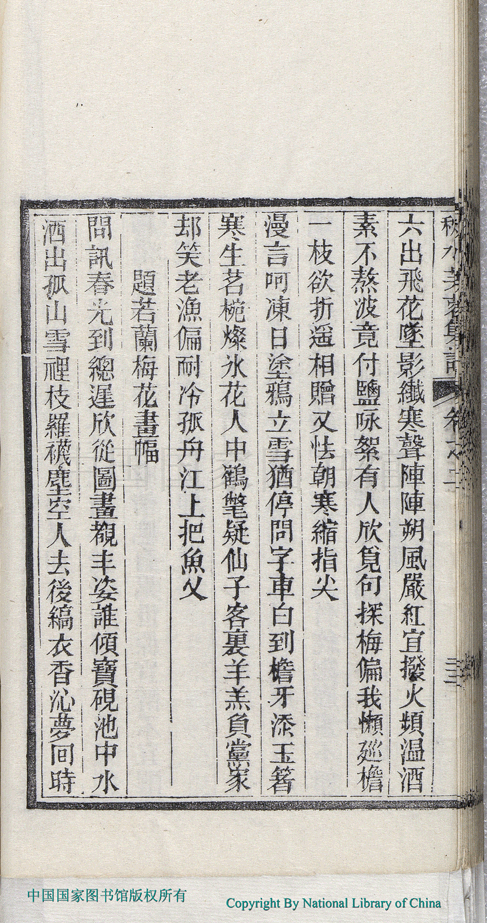 六出飛花墜影纖寒聲陣陣朔風嚴紅宜撥火頻溫酒
素不熬波竟付鹽咏絮有人欣覓句探梅偏我懶廵檐
一枝欲折遥相贈又怯朝寒縮指尖
漫言呵凍日塗鴉立雪猶停問字車白到檐牙添玉箸
寒生茗椀燦氷花人中鶴氅疑仙子客裏羊羔負黨家
却笑老漁偏耐冷孤舟江上把魚乂
題若蘭梅花畫幅
問訊春光到總遲欣從圖畫觀丰姿誰傾寶硯池中水
洒出孤山雪裡枝羅襪塵空人去後縞衣香沁夢囘時
中国国家图书馆版权所有
Copyright By National Library of China